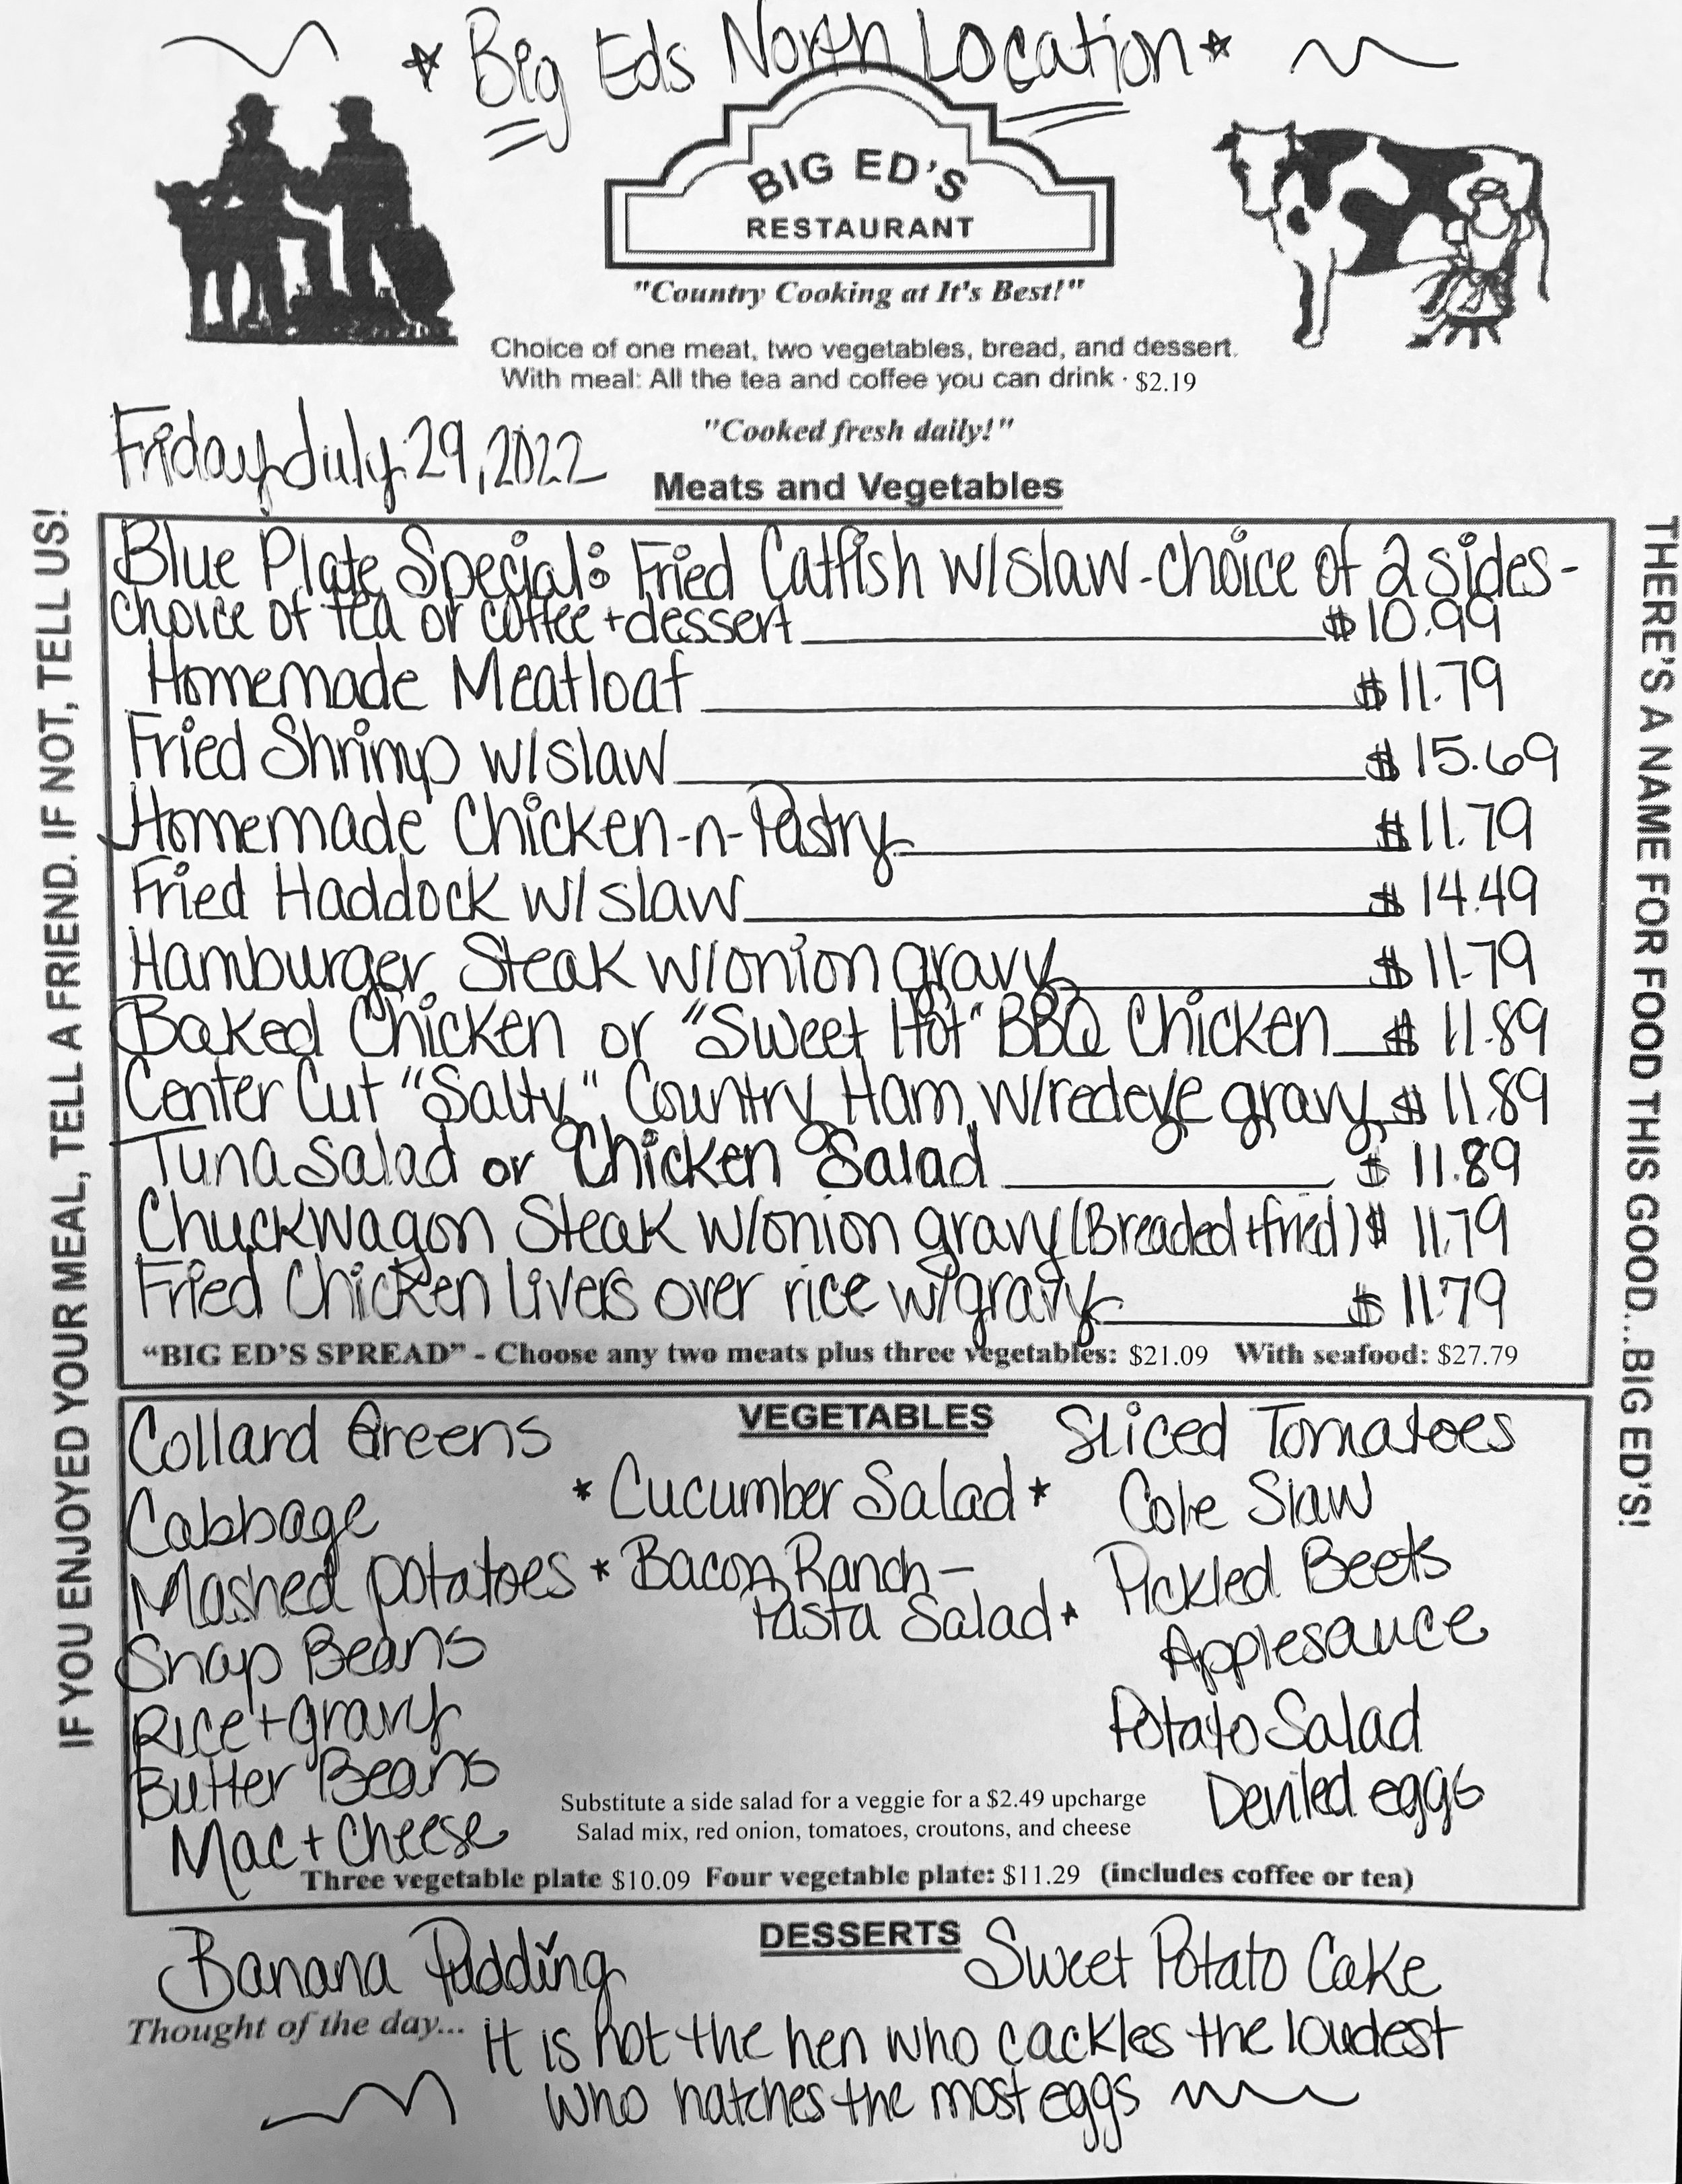 ☆ Big Eds North Location ☆
BIG ED'S
RESTAURANT
"Country Cooking at It's Best!"
Choice of one meat, two vegetables, bread, and dessert.
With meal: All the tea and coffee you can drink · $2.19
"Cooked fresh daily!"
Friday July 29, 2022
Meats and Vegetables
IF YOU ENJOYED YOUR MEAL, TELL A FRIEND. IF NOT, TELL US!
Blue Plate Special: Fried Catfish w/slaw-choice of 2 sides-
choice of tea or coffee + dessert $10.99
Homemade Meatloaf $11.79
Fried Shrimp w/slaw $15.69
Homemade Chicken-n-Pastry $11.79
Fried Haddock w/slaw $14.49
Hamburger Steak w/onion gravy $11.79
Baked Chicken or "Sweet Hot" BBQ Chicken $11.89
Center Cut "Salty" Country Ham w/redeye gravy $11.89
Tuna Salad or Chicken Salad $11.89
Chuckwagon Steak w/onion gravy (Breaded + fried) $11.79
Fried Chicken Livers over rice w/gravy $11.79
"BIG ED'S SPREAD" - Choose any two meats plus three vegetables: $21.09 With seafood: $27.79
THERE'S A NAME FOR FOOD THIS GOOD...BIG ED'S!
VEGETABLES
Collard Greens
Cabbage
Mashed potatoes
Snap Beans
Rice + gravy
Butter Beans
Mac + Cheese
* Cucumber Salad *
* Bacon Ranch -
Pasta Salad *
Sliced Tomatoes
Cole Slaw
Pickled Beets
Applesauce
Potato Salad
Deviled eggs
Substitute a side salad for a veggie for a $2.49 upcharge
Salad mix, red onion, tomatoes, croutons, and cheese
Three vegetable plate $10.09 Four vegetable plate: $11.29 (includes coffee or tea)
DESSERTS
Banana Pudding
Sweet Potato Cake
Thought of the day... it is not the hen who cackles the loudest
who hatches the most eggs